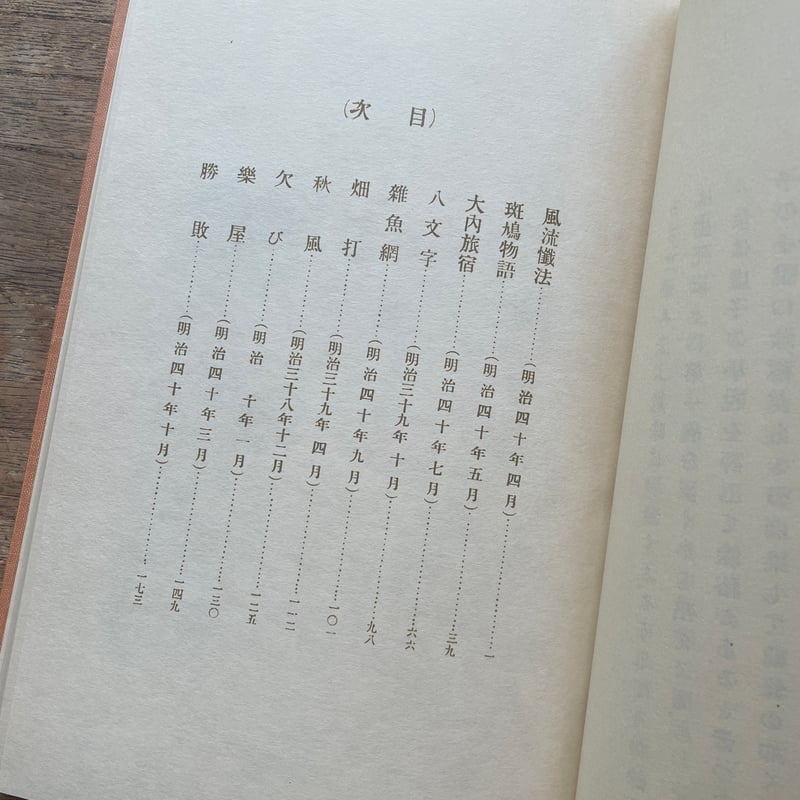 （目　次）
風流懺法…………（明治四十年四月）…………一
斑鳩物語…………（明治四十年五月）…………三九
大内旅宿…………（明治四十年七月）…………六六
八文字…………（明治三十九年十月）…………九八
雜魚網…………（明治四十年九月）…………一〇一
畑打…………（明治三十九年四月）…………一一二
秋風…………（明治三十八年十二月）…………一二五
欠び…………（明治　十年一月）…………一三〇
樂屋…………（明治四十年三月）…………一四九
勝敗…………（明治四十年十月）…………一七三